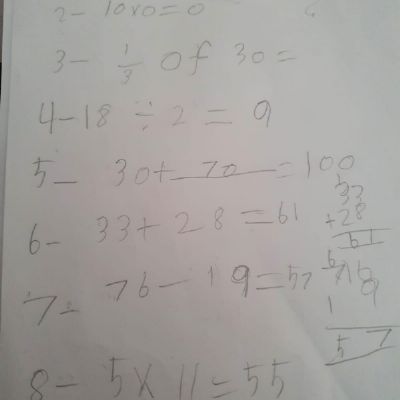 2- 10x0=0
3- 1/3 of 30=
4-18 ÷ 2 = 9
5- 30+ 70 =100
6- 33+28=61
1
33
+28
61
7- 76-19=57
6 7 16
1 9
5 7
8- 5x11=55